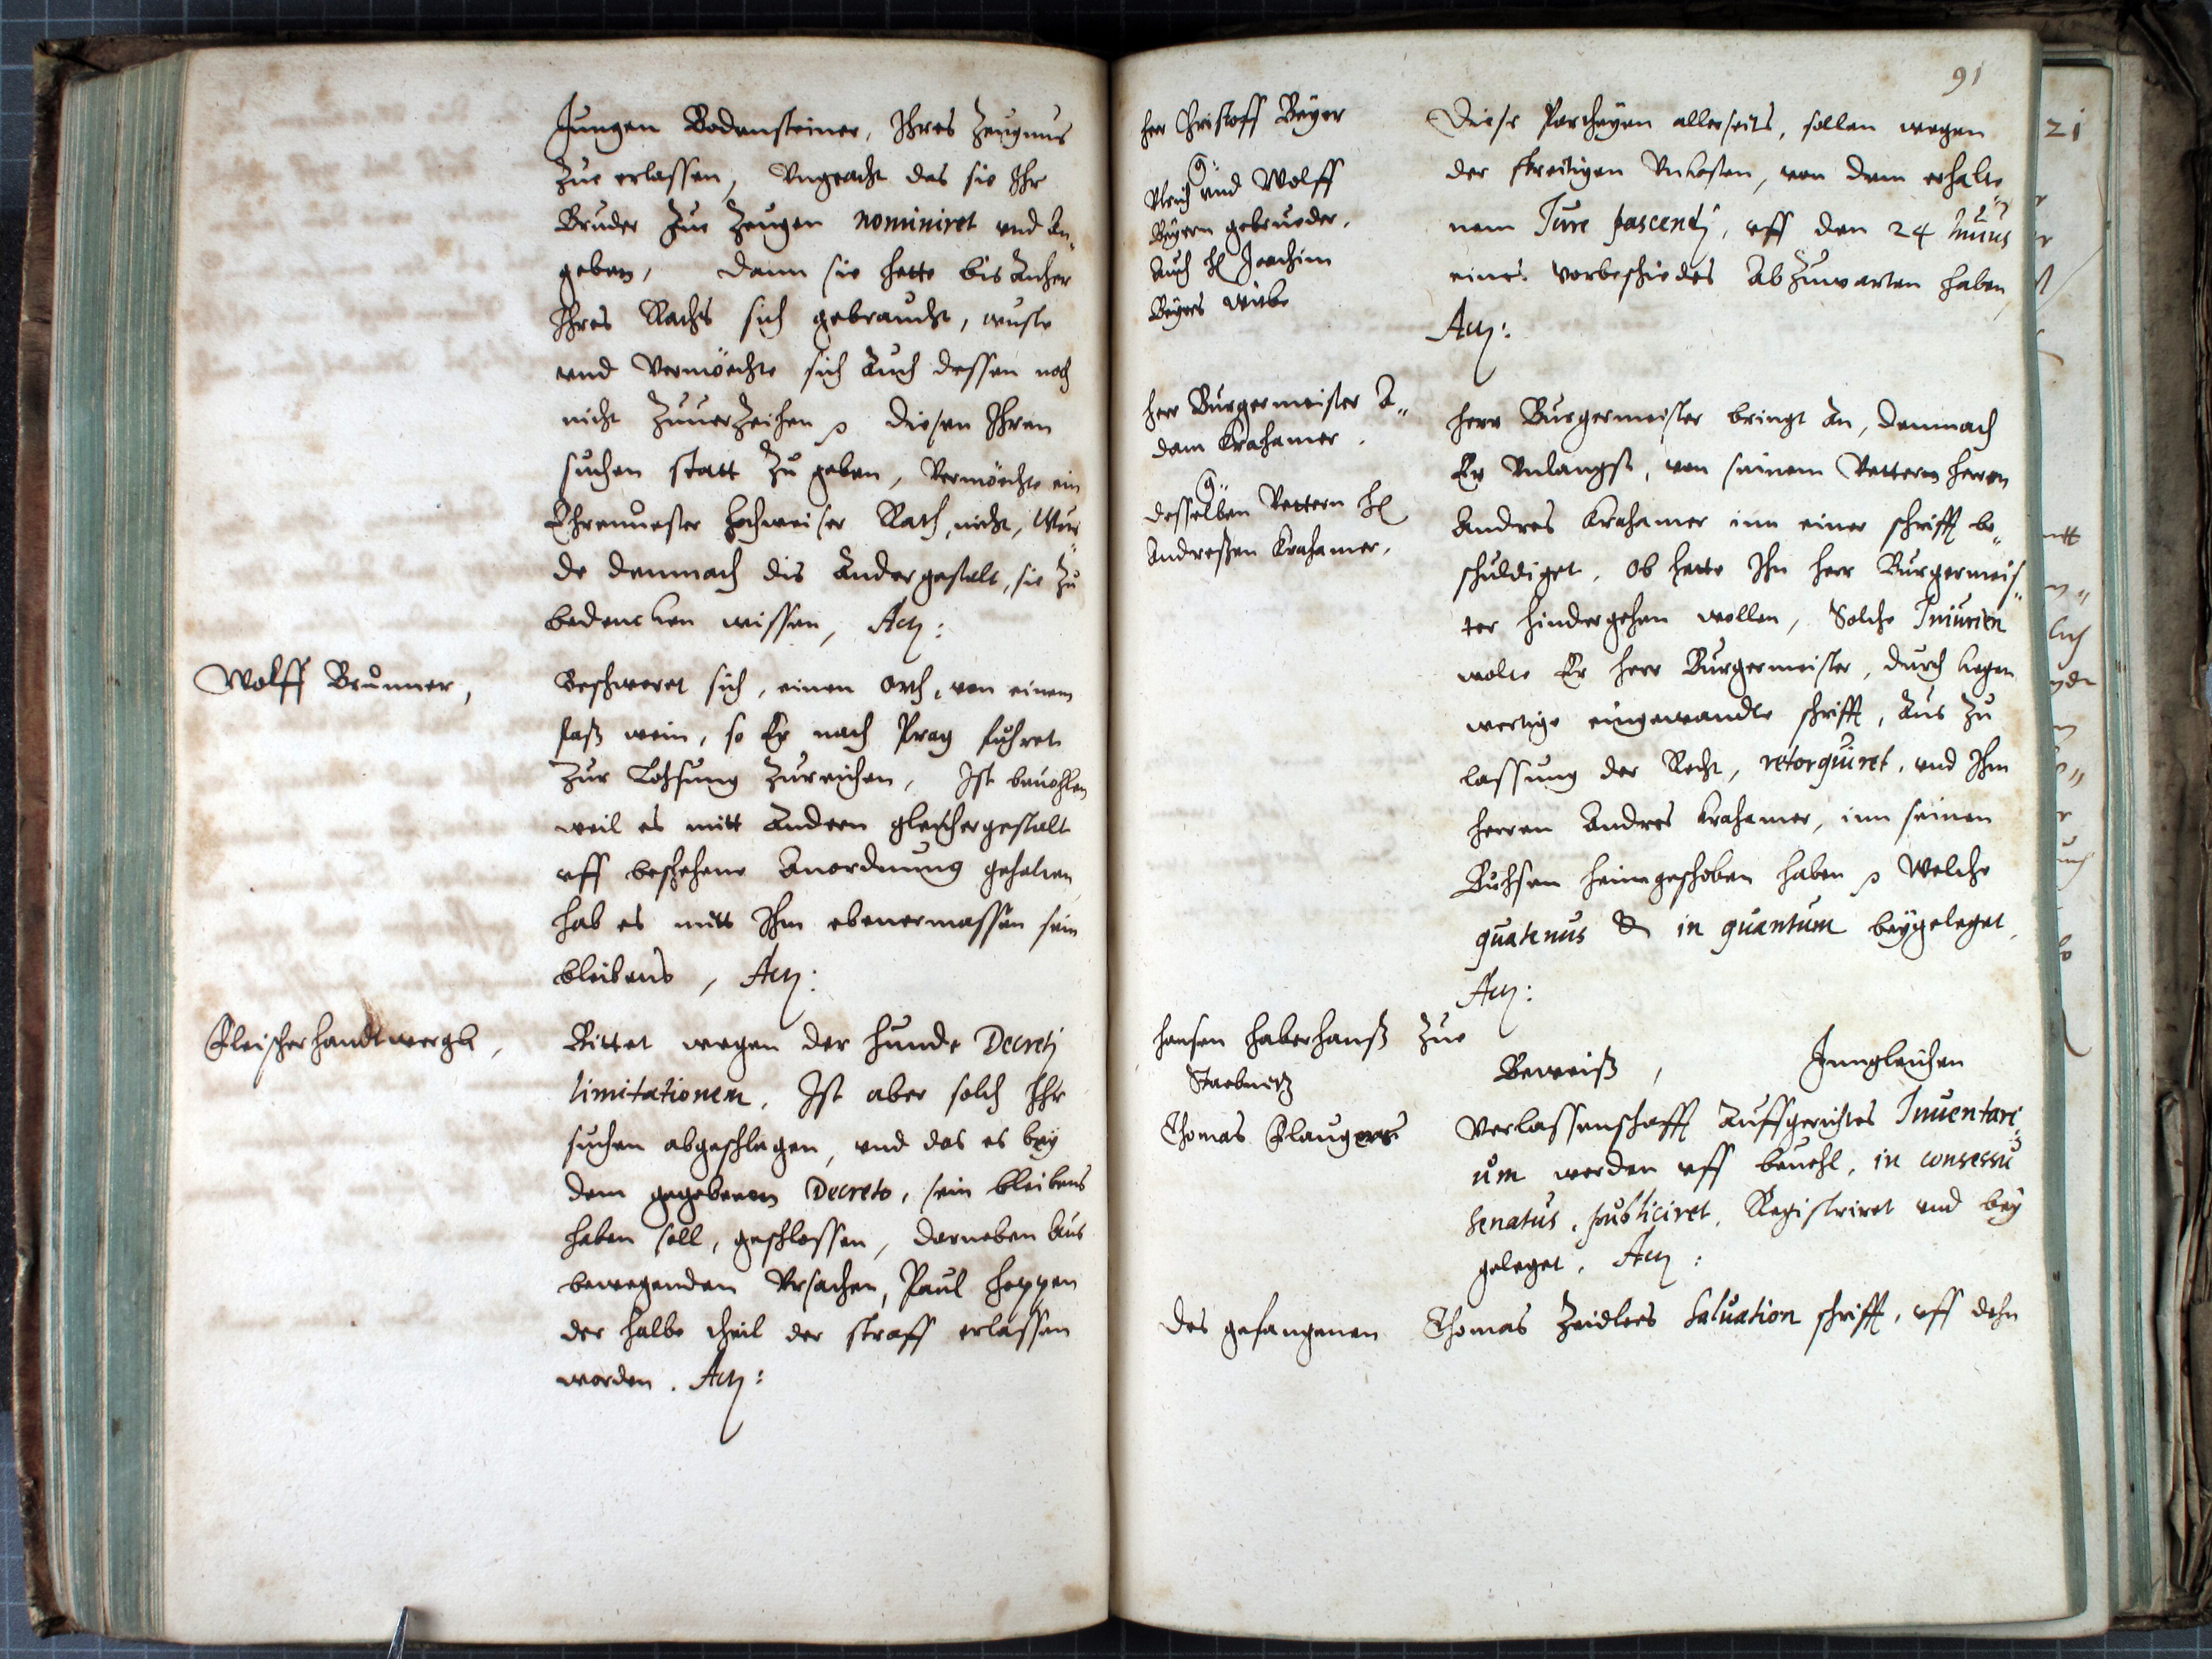 Jungen Bodensteiner, Ihres Zeugnus
Zue erlassen, Vngeacht das sie Ihr
Bruder Zue Zeugen nominiret vnd An„
geben, dann sie hette bis Anher
Ihres Raths sich gebraucht, wuste
vnd Vermöchte sich Auch dessen noch
nicht ZuuerZeihen, diesen Ihren
suchen statt Zu geben, Vermöchte ein
Ehrnuester Hochweiser Rath, nicht, Wur„
de demnach dis Andergestalt, sie Zu
bedencken wissen, Act:
Wolff Brunner,
Beschweret sich, einen Orth, von einem
faß wein, so Er nach Prag fuhret
Zur Losung Zureichen, Ist beuohlen
weil es mitt Andern gleichergestalt
vff beschehene Anordnung gehalten
hab es mitt Ihm ebenermassen sein
bleibens, Act:
Fleischerhandtwergk,
Bittet wegen der Hunde Decreti
limitationem, Ist aber solch Ihr
suchen abgeschlagen, vnd das es bey
dem gegebenen Decreto, sein bleibens
haben soll, geschlossen, darneben Aus
bewegenden Vrsachen, Paul Hoppen
der halbe theil der straff erlassen
worden. Act:
91
Herr Christoff Beyer
Vlrich vnd Wolff
Beyern gebrueder,
Auch H Joachim
Beyers Witbe
Diese Partheyen allerseits, sollen wegen
der streitigen Vnkosten, von dem erhalte„
nem Jure pascendi, vff den 24 huius
eines vorbeschiedes AbZuwarten haben
Act:
Herr Burgermeister A„
dam Krahamer.
desselben Vettern H
Andreßen Krahamer,
Herr Burgermeister bringt An, demnach
Er Vnlangst, von seinem Vettern Herrn
Andres Krahamer inn einer schrifft be„
schuldiget, Ob hette Ihn Herr Burgermeis„
ter hindergehen wollen, Solche Iniurien
wolte Er Herr Burgermeister, durch kegen
wertige eingewandte schrifft, Aus Zu
lassung der Recht, retorquiret, vnd Ihm
Herren Andres Krahamer, inn seinen
Buhsen heimgeschoben haben, Welche
quatenus & in quantum beygeleget,
Act:
Hansen Haberhanß Zue
Beweiß, Inngleichen
Thomas
Verlassenschafft Auffgerichtes Inuentari„
um werden vff beuehl, in consessu
Senatus, publiciret, Registriret vnd bey
geleget, Act:
Des gefangenen Thomas Zeidlers Saluation schrifft, vff dehn
21